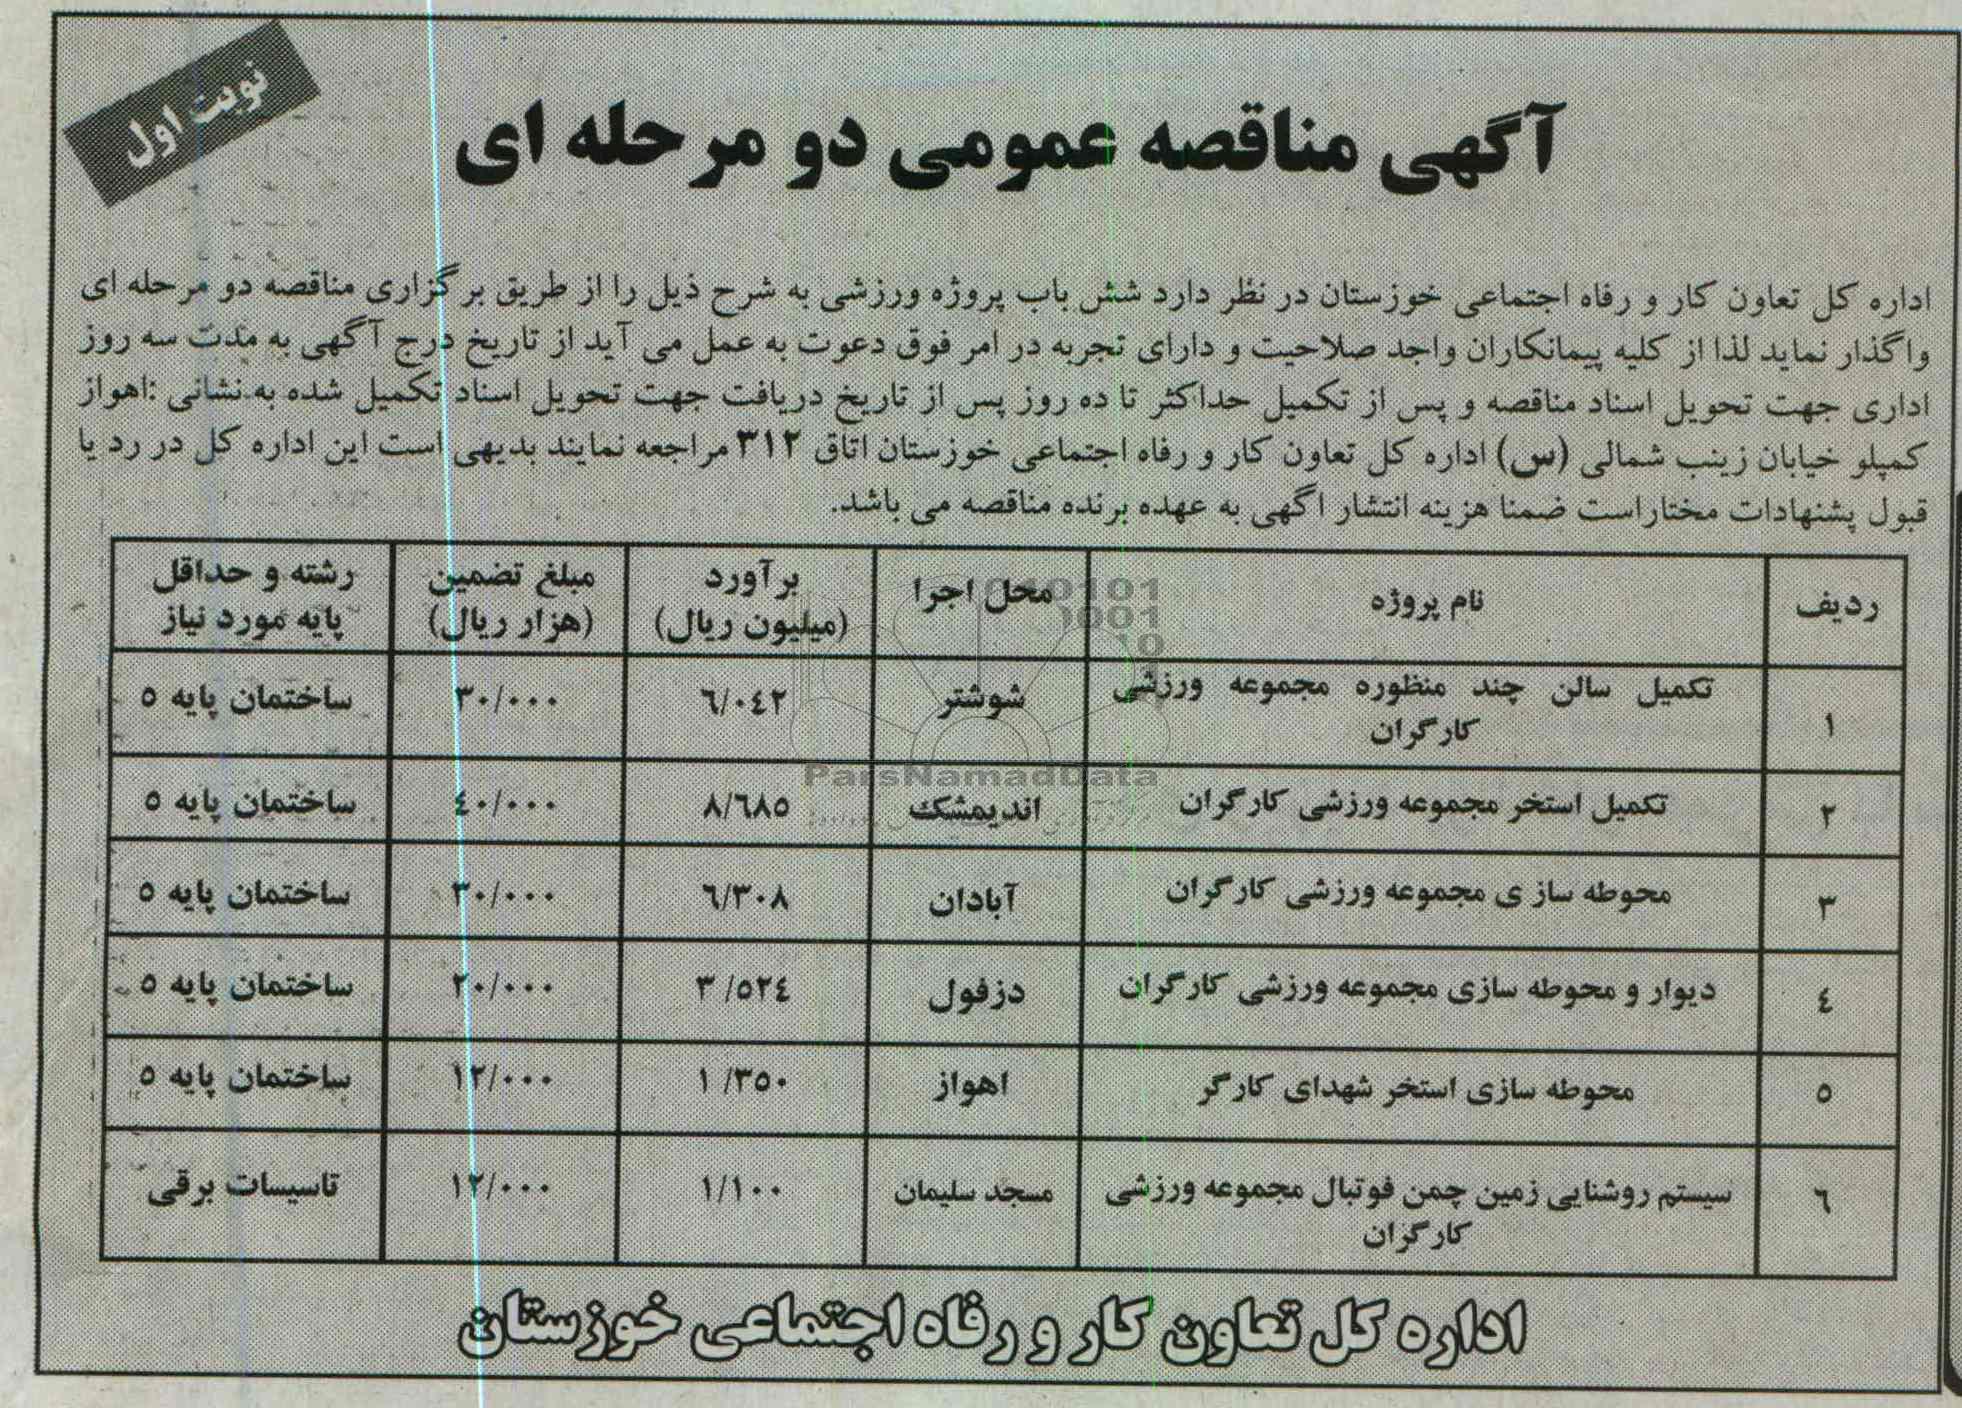 نوبت اول
آگهی مناقصه عمومی دو مرحله ای
اداره کل تعاون کار و رفاه اجتماعی خوزستان در نظر دارد شش باب پروژه ورزشی به شرح ذیل را از طریق برگزاری مناقصه دو مرحله ای
واگذار نماید لذا از کلیه پیمانکاران واجد صلاحیت و دارای تجربه در امر فوق دعوت به عمل می آید از تاریخ درج آگهی به مدت سه روز
اداری جهت تحویل اسناد مناقصه و پس از تکمیل حداکثر تا ده روز پس از تاریخ دریافت جهت تحویل اسناد تکمیل شده به نشانی :اهواز
کمپلو خیابان زینب شمالی (س) اداره کل تعاون کار و رفاه اجتماعی خوزستان اتاق ۳۱۲ مراجعه نمایند بدیهی است این اداره کل در رد یا
قبول پشنهادات مختاراست ضمنا هزینه انتشار اگهی به عهده برنده مناقصه می باشد.
ردیف نام پروژه محل اجرا برآورد (میلیون ریال) مبلغ تضمین (هزار ریال) رشته و حداقل پایه مورد نیاز
۱ تکمیل سالن چند منظوره مجموعه ورزشی کارگران شوشتر ۶/۰۴۲ ۳۰/۰۰۰ ساختمان پایه ۵
۲ تکمیل استخر مجموعه ورزشی کارگران اندیمشک ۸/۶۸۵ ۴۰/۰۰۰ ساختمان پایه ۵
۳ محوطه ساز ی مجموعه ورزشی کارگران آبادان ۶/۳۰۸ ۳۰/۰۰۰ ساختمان پایه ۵
۴ دیوار و محوطه سازی مجموعه ورزشی کارگران دزفول ۳/۵۲۴ ۲۰/۰۰۰ ساختمان پایه ۵
۵ محوطه سازی استخر شهدای کارگر اهواز ۱/۳۵۰ ۱۲/۰۰۰ ساختمان پایه ۵
۶ سیستم روشنایی زمین چمن فوتبال مجموعه ورزشی کارگران مسجد سلیمان ۱/۱۰۰ ۱۲/۰۰۰ تاسیسات برقی
ParsNamadData
اداره کل تعاون کار و رفاه اجتماعی خوزستان